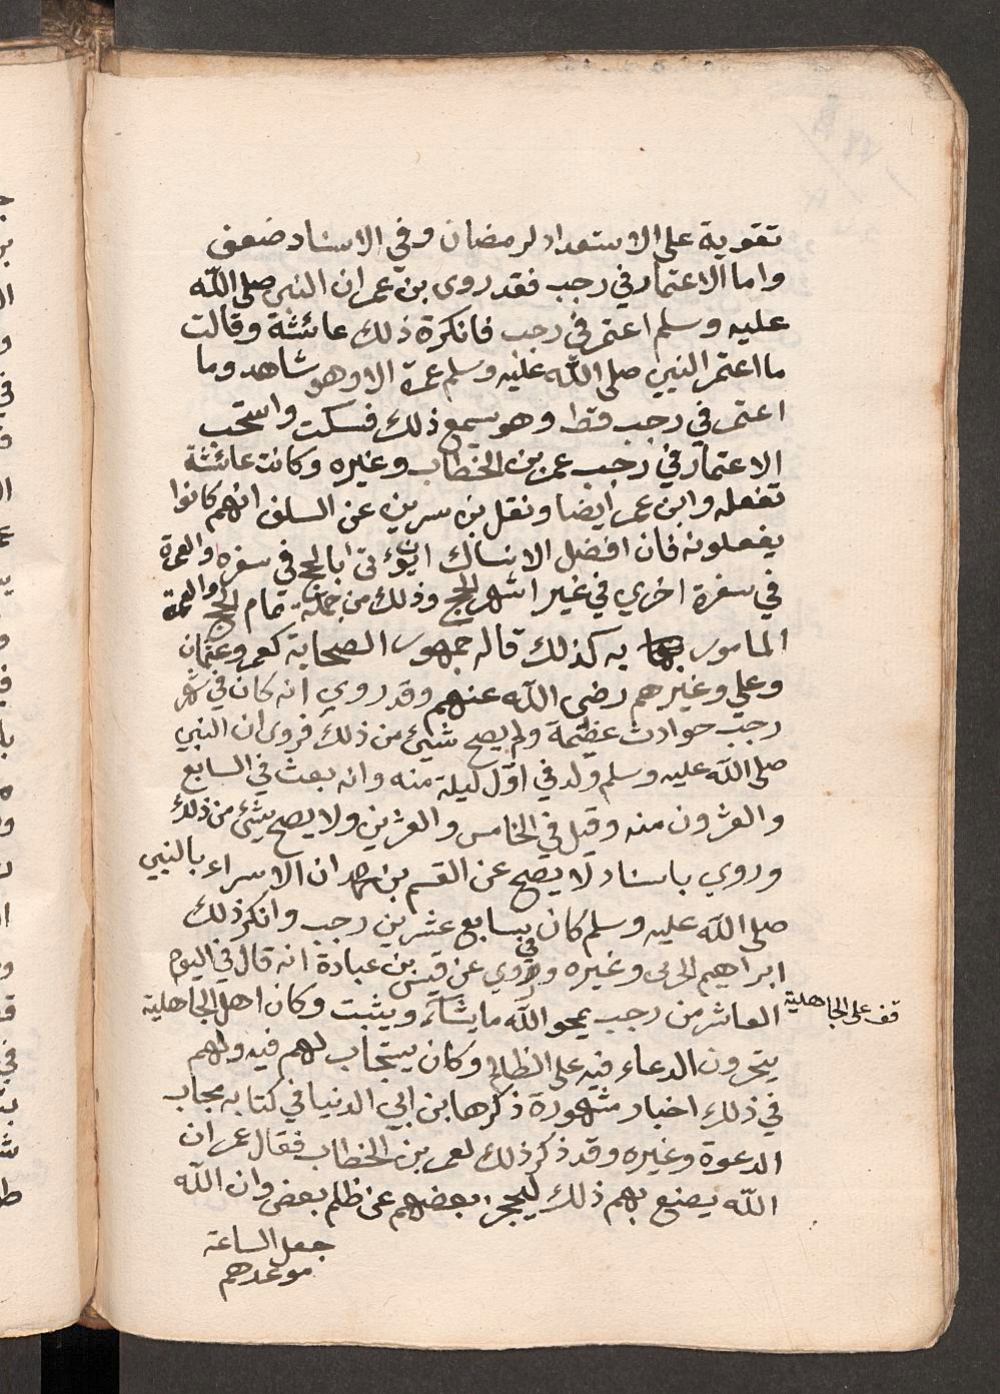 تقوية على الاستعداد لرمضان وفي الاسناد ضعف
واما الاعتمار في رجب فقد روى بن عمر ان النبي صلى الله
عليه وسلم اعتمر في رجب فانكرة ذلك عائشة وقالت
ما اعتمر النبي صلى الله عليه وسلم عمرة الا وهو شاهد وما
اعتمر في رجب قط وهو يسمع ذلك فسكت واستحب
الاعتمار في رجب عمر بن الخطاب وغيره وكانت عائشة
تفعله وابن عمر ايضا ونقل بن سرين عن السلف انهم كانوا
يفعلونه فان افضل الانساك ان يؤتى بالحج في سفره والعمرة
في سفرة اخري في غير اشهر الحج وذلك من جملة تمام الحج والعمرة
المامور به كذلك قاله جمهور الصحابة كعمر وعثمان
وعلي وغيرهم رضي الله عنهم وقد روي انه كان في شهر
رجب حوادث عظيمة ولم يصح شيئ من ذلك فروى ان النبي
صلى الله عليه وسلم ولد في اول ليلة منه وانه بعث في السابع
والعشرون منه وقيل في الخامس والعشرين ولا يصح شيئ من ذلك
وروي باسناد لا يصح عن القسم بن ان الاسراء بالنبي
صلى الله عليه وسلم كان في سابع عشرين رجب وانكر ذلك
ابراهيم الحربى وغيره وروي عن قيس بن عبادة انه قال في اليوم
العاشر من رجب يمحو الله ما يشاء ويثبت وكان اهل الجاهلية
قف على الجاهلية
يتحرون الدعاء فيه على الظالم وكان يستجاب لهم فيه ولهم
في ذلك اخبار مشهورة ذكرها بن ابي الدنيا في كتابه مجاب
الدعوة وغيره وقد ذكر ذلك لعمر بن الخطاب فقال عمر ان
الله يصنع بهم ذلك ليحجز بعضهم عن ظلم بعض وان الله
جعل الساعة
موعدهم